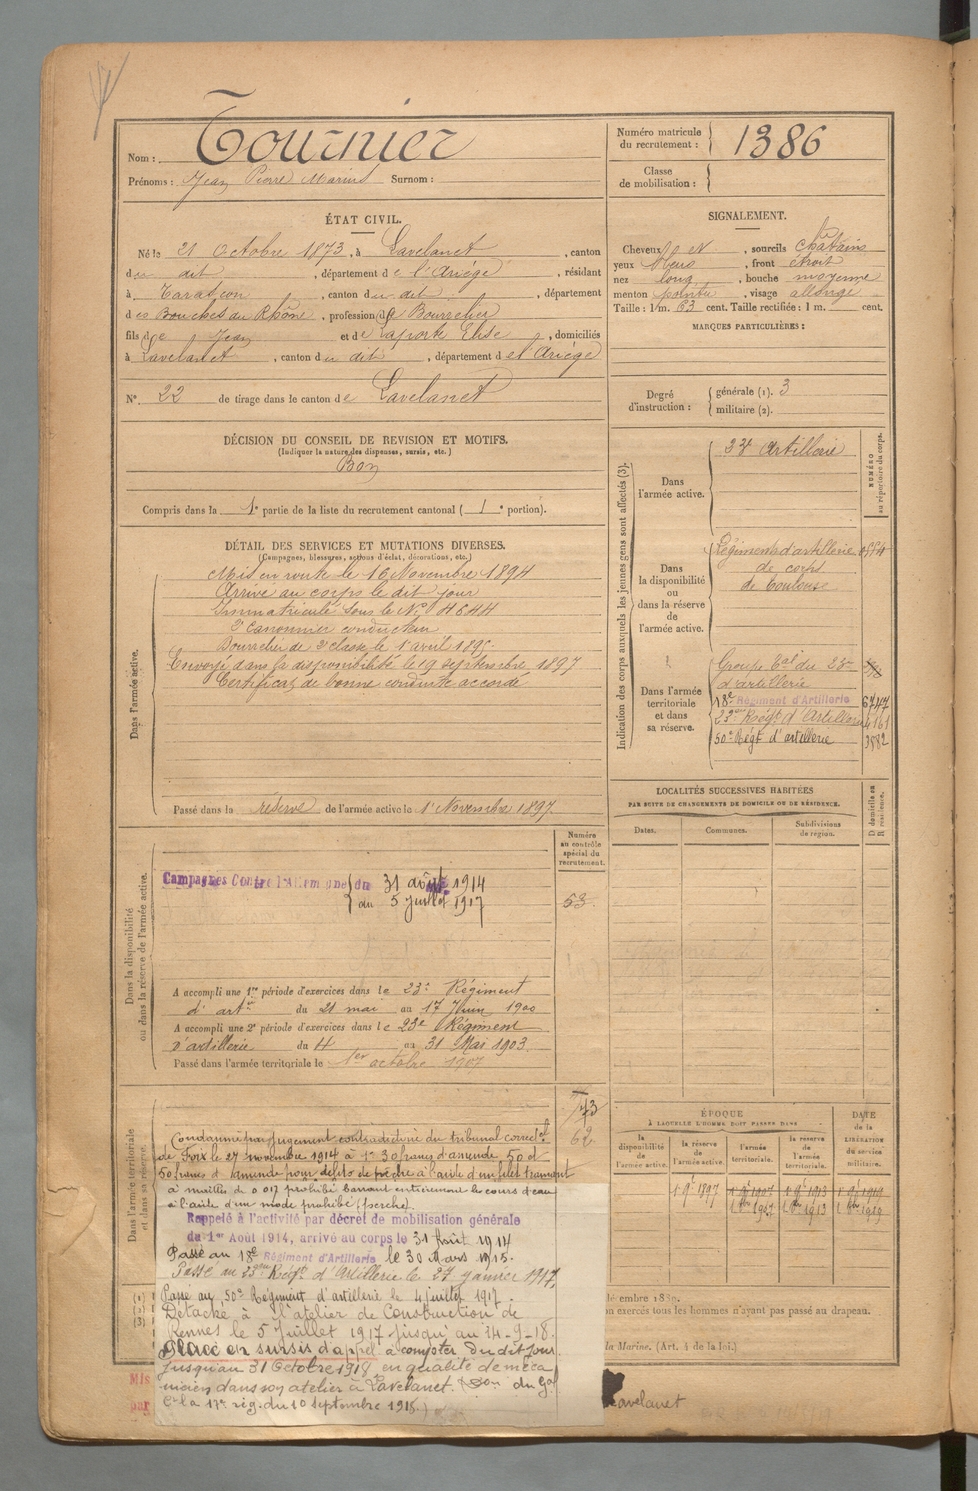 Nom : Tournier
Prénoms : Jean Pierre Marius Surnom :
Numéro matricule
du recrutement : 1386
Classe
de mobilisation :
ÉTAT CIVIL.
Né le 21 Octobre 1873, à Lavelanet, canton
du dit, département de l'Ariège, résidant
à Tarascon, canton du dit, département
des Bouches du Rhône, profession de Bourrelier
fils de Jean et de Laporte Elise, domiciliés
à Lavelanet, canton du dit, département de l'Ariège
N° 22 de tirage dans le canton de Lavelanet
SIGNALEMENT.
Cheveux et N., sourcils chatains
yeux bleus, front étroit
nez long, bouche moyenne
menton pointu, visage allongé
Taille : 1 m. 63 cent. Taille rectifiée : 1 m. cent.
MARQUES PARTICULIÈRES :
Degré
d'instruction :
générale (1). 3
militaire (2).
DÉCISION DU CONSEIL DE REVISION ET MOTIFS.
(Indiquer la nature des dispenses, sursis, etc.)
Bon
Compris dans la 1e partie de la liste du recrutement cantonal ( 1e portion).
DÉTAIL DES SERVICES ET MUTATIONS DIVERSES.
(Campagnes, blessures, actions d'éclat, décorations, etc.)
Dans l'armée active.
Mis en route le 16 Novembre 1894
Arrivé au corps le dit jour
Immatriculé sous le N° 4644
2e canonnier conducteur
Bourrelier de 2e classe le 1er avril 1895.
Envoyé dans la disponibilité le 19 septembre 1897
Certificat de bonne conduite accordé
Passé dans la réserve de l'armée active le 1er Novembre 1897
Indication des corps auxquels les jeunes gens sont affectés (3).
NUMÉRO
au répertoire du corps.
Dans
l'armée active.
23e Artillerie
Dans
la disponibilité
ou
dans la réserve
de
l'armée active.
Régiments d'artillerie
de corps
de Toulouse
Dans l'armée
territoriale
et dans
sa réserve.
Groupe Tal du 23e
d'artillerie
18e Régiment d'Artillerie 6747
23e Régt d'Artillerie 4161
50e Régt d'artillerie 3882
LOCALITÉS SUCCESSIVES HABITÉES
PAR SUITE DE CHANGEMENTS DE DOMICILE OU DE RÉSIDENCE.
Dates.
Communes.
Subdivisions
de région.
D domicile ou
R résidence.
Dans la disponibilité
ou dans la réserve de l'armée active.
Numéro
au contrôle
spécial du
recrutement.
Campagnes Contre l'Allemagne du 31 août 1914
du 5 juillet 1917
53
A accompli une 1re période d'exercices dans le 23e Régiment
d'artie du 21 mai au 17 Juin 1900
A accompli une 2e période d'exercices dans le 23e Régiment
d'artillerie du 4 au 31 Mai 1903
Passé dans l'armée territoriale le 1er octobre 1907
Dans l'armée territoriale
et dans sa réserve.
62
Condamné par jugement contradictoire du tribunal correctel
de Foix le 27 novembre 1914 à 1° 30 francs d'amende 50 et
50 francs d'amende pour délits de pêche à l'aide d'un filet trainant
à mailles de 0.017 prohibé barrant entièrement le cours d'eau
à l'aide d'un mode prohibé (perche)
Rappelé à l'activité par décret de mobilisation générale
du 1er Août 1914, arrivé au corps le 31 Août 1914
Passé au 18e Régiment d'Artillerie le 30 Mars 1915.
Passé au 23e Régt d'Artillerie le 27 janvier 1917
Passé au 50e Régiment d'artillerie le 4 juillet 1917.
Détaché à l'atelier de Construction de
Rennes le 5 Juillet 1917 jusqu'au 14-9-18.
Placé en sursis d'appel à compter du dit jour
jusqu'au 31 Octobre 1918, en qualité de méca
nicien dans son atelier à Lavelanet. (Don du Gal
Ct la 17e rég. du 10 septembre 1918.)
ÉPOQUE
À LAQUELLE L'HOMME DOIT PASSER DANS
la
disponibilité
de
l'armée active.
la réserve
de
l'armée active.
l'armée
territoriale.
la réserve
de
l'armée
territoriale.
DATE
de la
LIBÉRATION
du service
militaire.
1 9e 1897
(1)
(2)
(3)
n exercés tous les hommes n'ayant pas passé au drapeau.
la Marine. (Art. 4 de la loi.)
Mis
par
Lavelanet